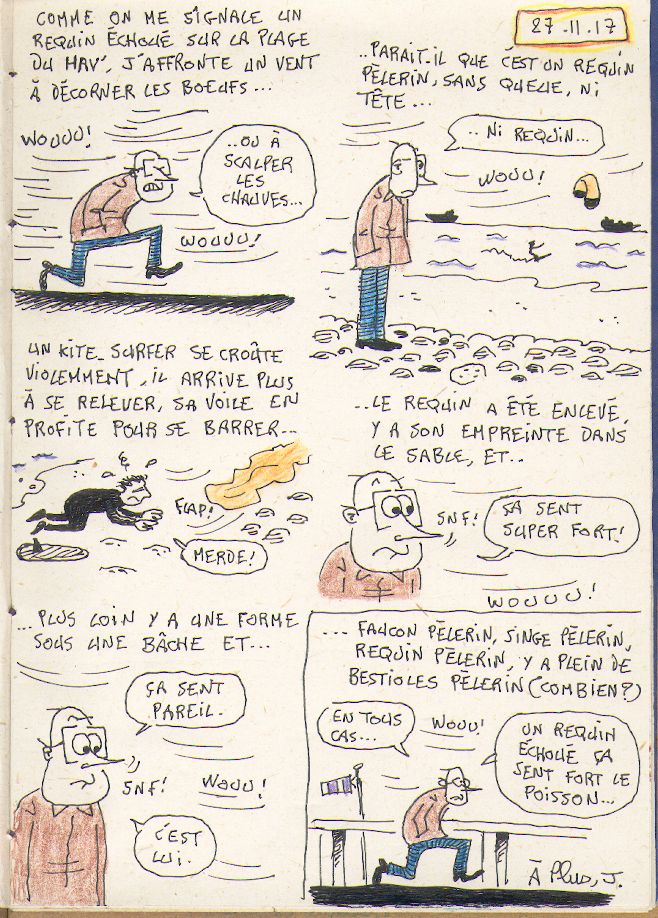 COMME ON ME SIGNALE UN
REQUIN ÉCHOUÉ SUR LA PLAGE
DU HAV', J'AFFRONTE UN VENT
À DÉCORNER LES BOEUFS...
WOUUU!
..OU À
SCALPER
LES
CHAUVES...
WOUUU!
27.11.17
..PARAIT-IL QUE C'EST UN REQUIN
PÈLERIN, SANS QUEUE, NI
TÊTE...
.. NI REQUIN...
WOUU!
UN KITE-SURFER SE CROÛTE
VIOLEMMENT, IL ARRIVE PLUS
À SE RELEVER, SA VOILE EN
PROFITE POUR SE BARRER...
FLAP!
MERDE!
...LE REQUIN A ÉTÉ ENLEVÉ,
Y A SON EMPREINTE DANS
LE SABLE, ET...
SNF!
ÇA SENT
SUPER FORT!
WOUUU!
...PLUS LOIN Y A UNE FORME
SOUS UNE BÂCHE ET...
ÇA SENT
PAREIL.
SNF!
WOUU!
C'EST
LUI.
... FAUCON PÈLERIN, SINGE PÈLERIN,
REQUIN PÈLERIN, Y A PLEIN DE
BESTIOLES PÈLERIN (COMBIEN?)
EN TOUS
CAS...
WOUU!
UN REQUIN
ÉCHOUÉ ÇA
SENT FORT LE
POISSON...
À Plus, J.